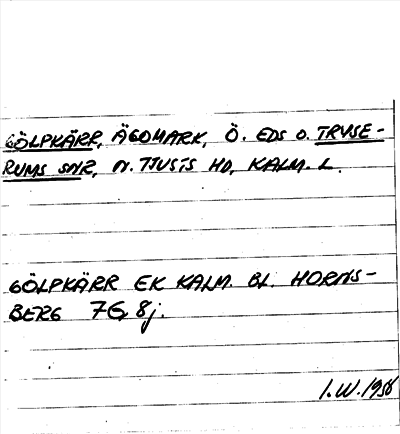 GÖLPKÄRR, ÄGOMARK, Ö. EDS O. TRYSE-
RUMS SNR, N. TJUSTS HD, KALM. L.
GÖLPKÄRR EK KALM. BL. HORNS-
BERG 7G, 8j.
I.W. 1958